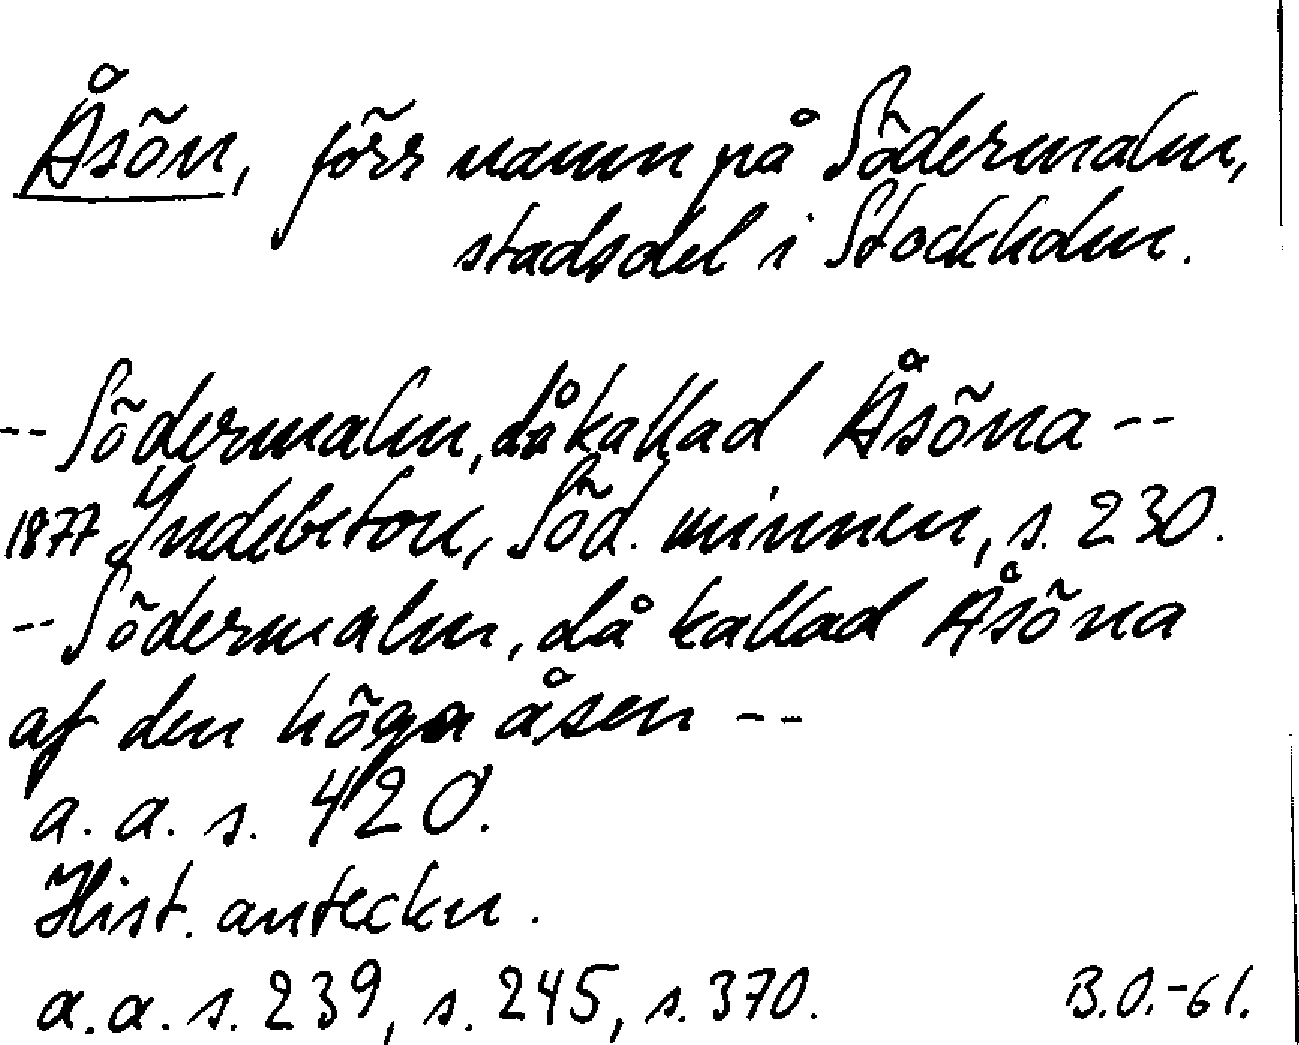 Åsön, förr namn på Södermalm,
stadsdel i Stockholm.
-- Södermalm, då kallad Åsöna --
1877 Indebetou, Söd. minnen, s. 230.
-- Södermalm, då kallad Åsöna
af den höga åsen --
a.a. s. 420.
Hist. anteckn.
a.a. s. 239, s. 245, s. 370. B.O.-61.